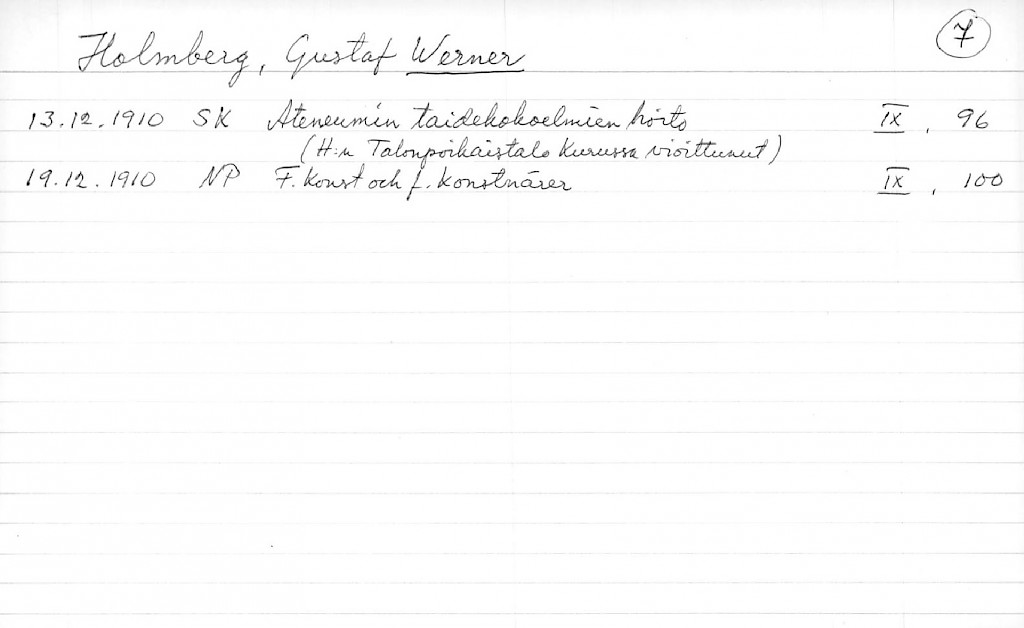 Holmberg, Gustaf Werner 7
13.12.1910 SK Ateneumin taidekokoelmien hoito IX, 96
(H:n Talonpoikaistalo Kurussa vioittunut)
19.12.1910 NP F. konst och f. konstnärer IX, 100